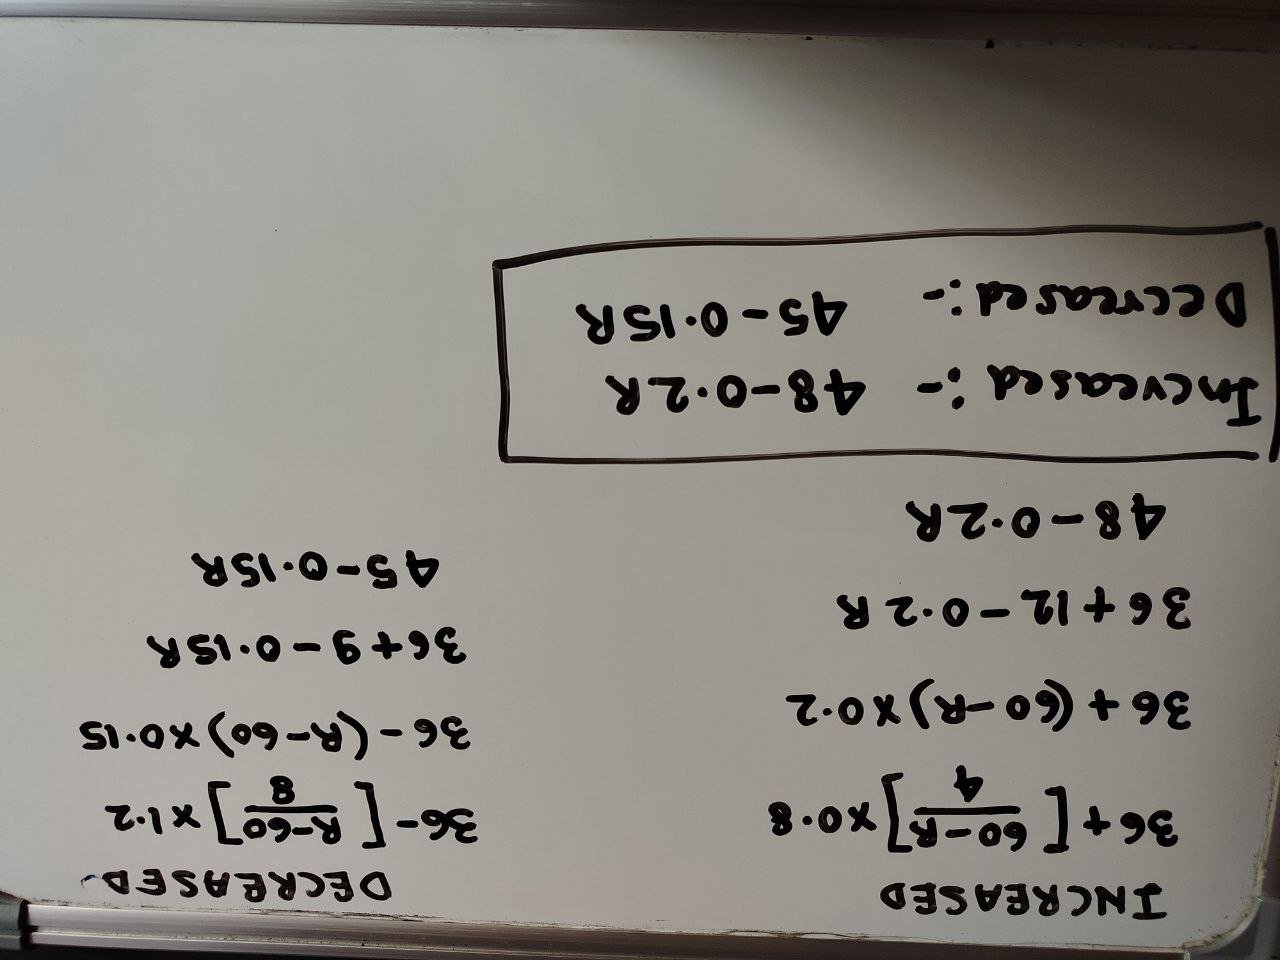 INCREASED
36 + [60-R/4] x 0.8
36 + (60-R) x 0.2
36 + 12 - 0.2R
48 - 0.2R
DECREASED
36 - [R-60/8] x 1.2
36 - (R-60) x 0.15
36 + 9 - 0.15R
45 - 0.15R
Increased :- 48 - 0.2R
Decreased :- 45 - 0.15R